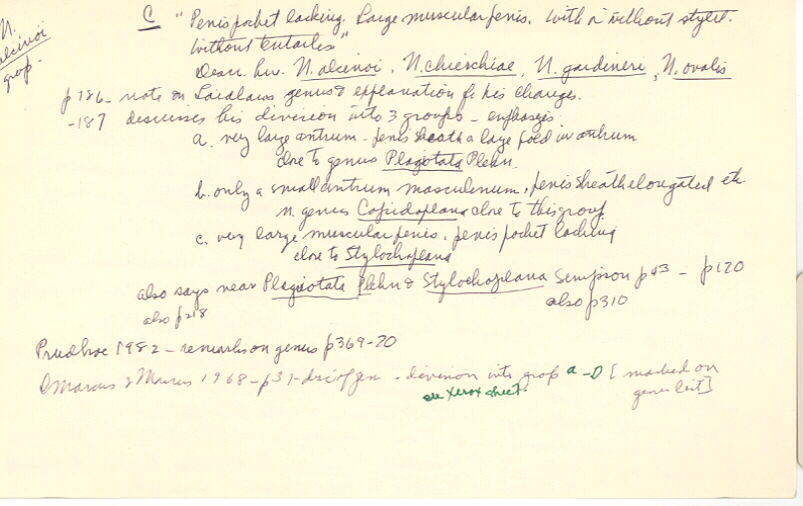 N. alcinoi group
C "Penis pocket lacking. Large muscular penis. With or without stylet.
Without tentacles"
N. alcinoi, N. chierchiae, N. gardineri, N. ovalis
p 186 - note on Laidlaws genus & explanation for his changes.
-187 discusses his division into 3 groups - emphasis
a. very large antrum - penis sheath a large fold in antrum
close to genus Plagiotata Plehn.
b. only a small antrum masculinum, penis sheath elongated etc
n. genus Copidoplana close to this group.
c. very large muscular penis, penis pocket lacking
close to Stylochoplana
also says near Plagiotata Plehn & Stylochoplana Stimpson p 43 - p 120
also p 218 also p 310
Prudhoe 1982 - remarks on genus p 369-70
Marcus & Marcus 1968 - p 31 - division into group a - D [marked on
see Xerox sheet. genus list]